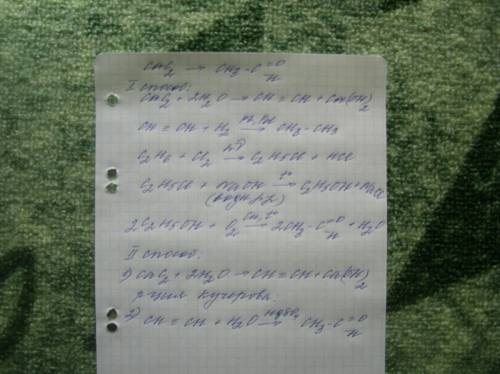 CaC2 → CH3-C=O
H
I способ:
CaC2 + 2H2O → CH ≡ CH + Ca(OH)2
CH ≡ CH + H2 →Pt, Pd CH3-CH3
C2H6 + Cl2 →hν C2H5Cl + HCl
C2H5Cl + NaOH →t° C2H5OH + NaCl
(водн. р-р)
2C2H5OH + O2 →Cu, t° 2CH3-C=O + H2O
H
II способ:
1) CaC2 + 2H2O → CH ≡ CH + Ca(OH)2
р-ция Кучерова.
2) CH ≡ CH + H2O →HgSO4 CH3-C=O
H